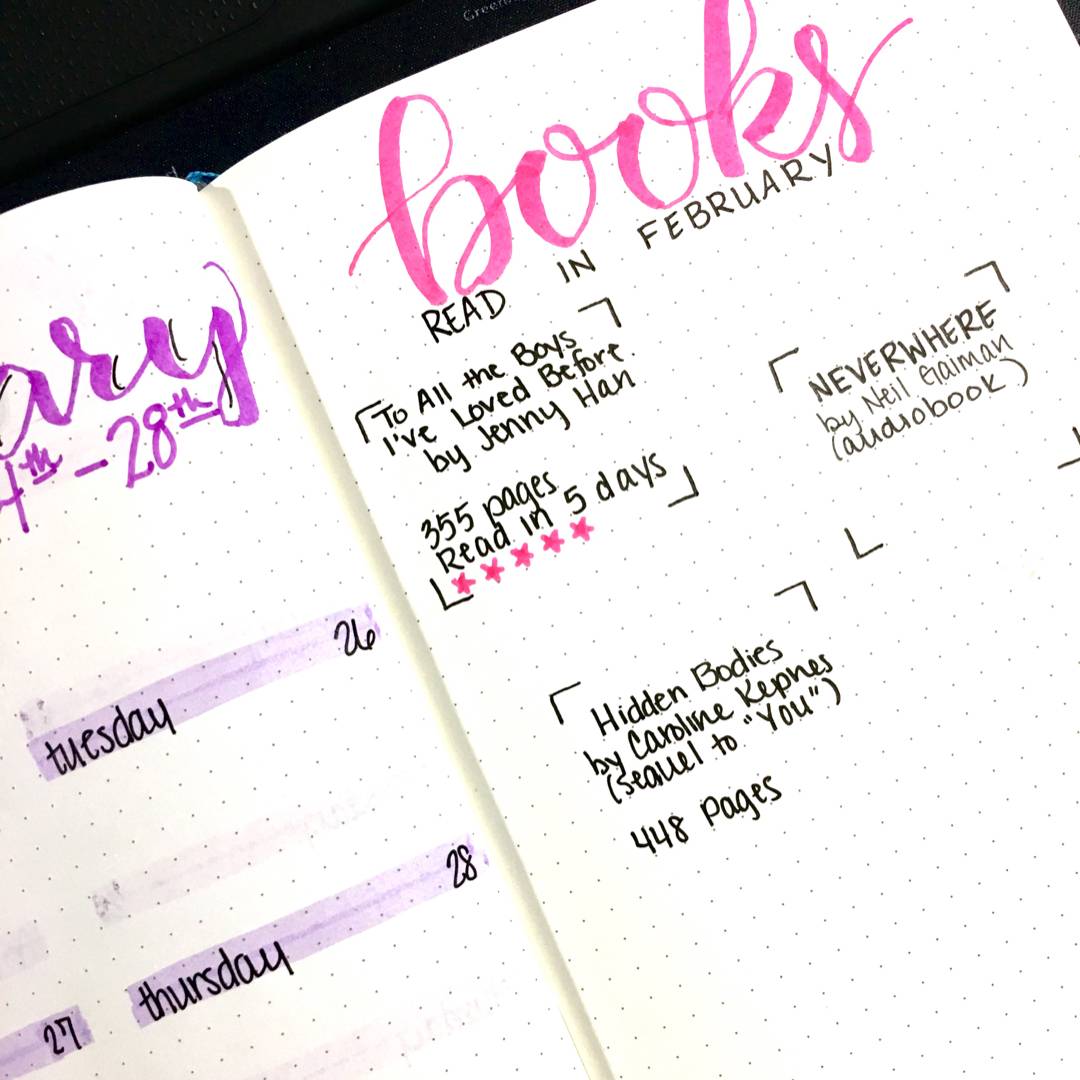 books
READ IN FEBRUARY
To All the Boys
I've Loved Before
by Jenny Han
355 pages
Read in 5 days
NEVERWHERE
by Neil Gaiman
(audiobook)
Hidden Bodies
by Caroline Kepnes
(sequel to "You")
448 pages
ary
4th - 28th
26
tuesday
28
thursday
27